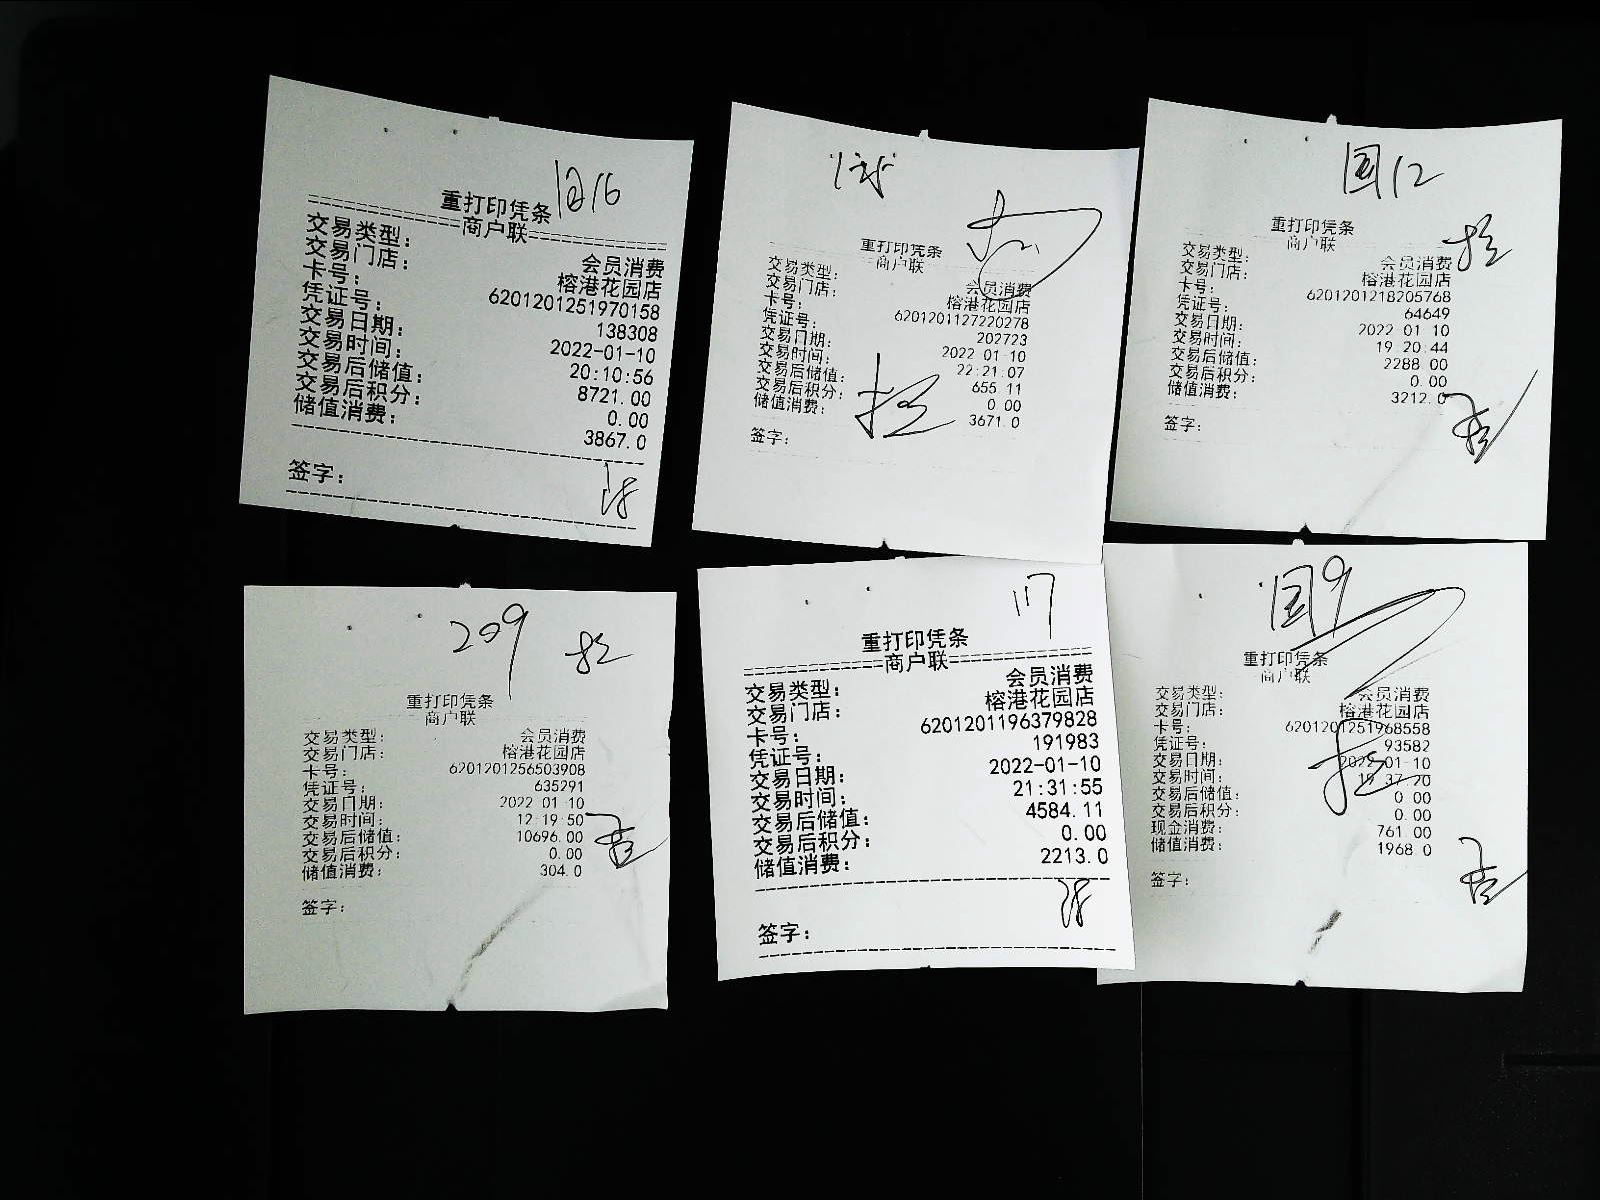 重打印凭条
商户联
交易类型： 会员消费
交易门店： 榕港花园店
卡号： 6201201251970158
凭证号： 138308
交易日期： 2022-01-10
交易时间： 20:10:56
交易后储值： 8721.00
交易后积分： 0.00
储值消费： 3867.0
签字：
重打印凭条
商户联
交易类型： 会员消费
交易门店： 榕港花园店
卡号： 6201201127220278
凭证号： 202723
交易日期： 2022 01 10
交易时间： 22:21:07
交易后储值： 655 11
交易后积分： 0 00
储值消费： 3671.0
签字：
国12
重打印凭条
商户联
交易类型： 会员消费
交易门店： 榕港花园店
卡号： 6201201218205768
凭证号： 64649
交易日期： 2022 01 10
交易时间： 19 20:44
交易后储值： 2288 00
交易后积分： 0.00
储值消费： 3212.0
签字：
209
重打印凭条
商户联
交易类型： 会员消费
交易门店： 榕港花园店
卡号： 6201201256503908
凭证号： 635291
交易日期： 2022 01 10
交易时间： 12 19 50
交易后储值： 10696.00
交易后积分： 0.00
储值消费： 304.0
签字：
117
重打印凭条
商户联
交易类型： 会员消费
交易门店： 榕港花园店
卡号： 6201201196379828
凭证号： 191983
交易日期： 2022-01-10
交易时间： 21:31:55
交易后储值： 4584.11
交易后积分： 0.00
储值消费： 2213.0
签字：
国9
重打印凭条
商户联
交易类型： 会员消费
交易门店： 榕港花园店
卡号： 6201201251968558
凭证号： 93582
交易日期： 2022-01-10
交易时间： 19 37:20
交易后储值： 0 00
交易后积分： 0.00
现金消费： 761 00
储值消费： 1968 0
签字：